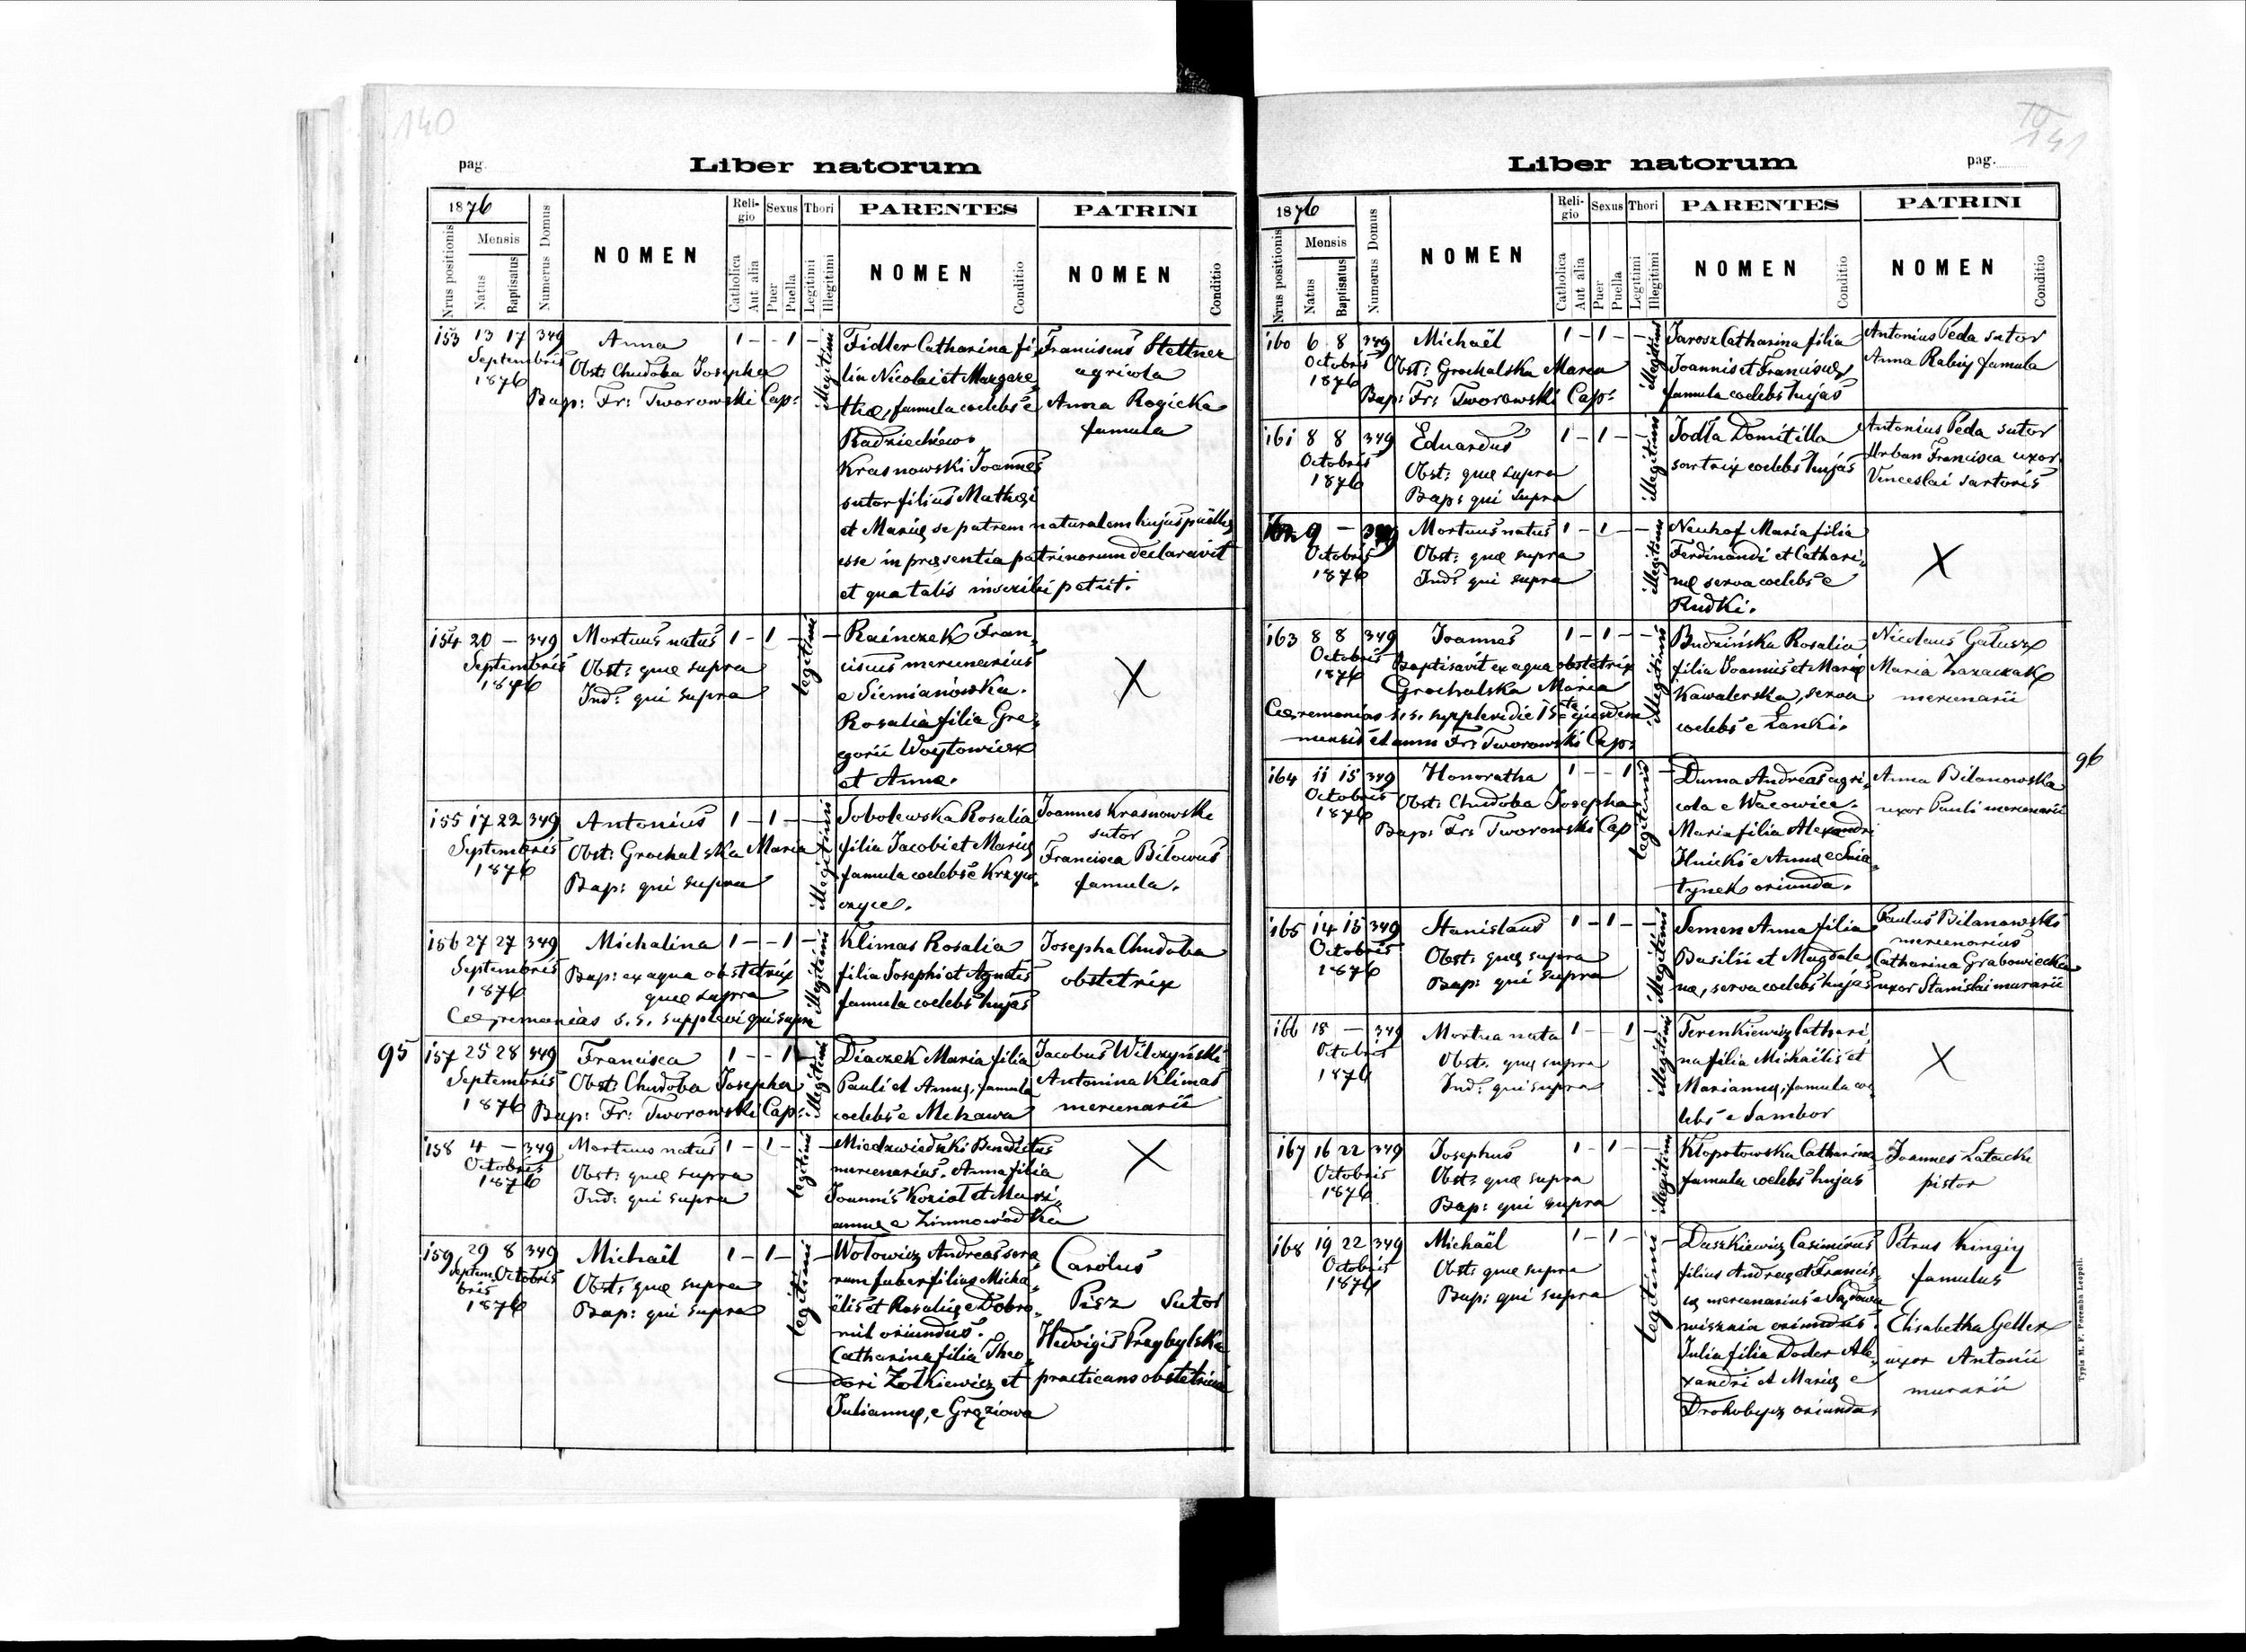 140
pag.
Liber natorum
1876
Nrus positionis
Mensis
Natus
Baptisatus
Numerus Domus
NOMEN
Religio
Catholica
Aut alia
Sexus
Puer
Puella
Thori
Legitimi
Illegitimi
PARENTES
NOMEN
Conditio
PATRINI
NOMEN
Conditio
153 13 17 349 Anna 1 - - 1 -
Septembris
1876
Obst: Chudoba Josepha
Bap: Fr: Tworowski Cap:
illegitimi
Fidler Catharina fi
lia Nicolai et Margare
thæ, famula coelebs e
Radziechow.
Krasnowski Joannes
sutor filius Mathæi
et Mariæ se patrem naturalem hujus puellæ
esse in præsentia patrinorum declaravit
et qua talis inscribi petiit.
Franciscus Stettner
agricola
Anna Rogicka
famula
154 20 - 349 Mortuus natus 1 - 1 - -
Septembris
1876
Obst: quæ supra
Ind: qui supra
legitimi
Rainczek Fran
ciscus mercenarius
e Siemianówka.
Rosalia filia Gre
gorii Woytowicz
et Annæ.
X
155 17 22 349 Antonius 1 - 1 - -
Septembris
1876
Obst: Grochalska Maria
Bap: qui supra
illegitimi
Sobolewska Rosalia
filia Jacobi et Mariæ
famula coelebs e Krzyw
czyce.
Joannes Krasnowski
sutor
Francisca Bilowus
famula.
156 27 27 349 Michalina 1 - - 1 -
Septembris
1876
Bap: ex aqua obstetrix
quæ supra
Cæremonias s. s. supplevi qui supra
illegitimi
Klimas Rosalia
filia Josephi et Agnetis
famula coelebs hujas
Josepha Chudoba
obstetrix
95
157 25 28 349 Francisca 1 - - 1 -
Septembris
1876
Obst: Chudoba Josepha
Bap: Fr: Tworowski Cap:
illegitimi
Diaczek Maria filia
Pauli et Annæ, famula
coelebs e Mchawa
Jacobus Wilczyński
Antonina Klimas
mercenarii
158 4 - 349 Mortuus natus 1 - 1 - -
Octobris
1876
Obst: quæ supra
Ind: qui supra
legitimi
Miedzwiedzki Benedictus
mercenarius. Anna filia
Joannis Kozioł et Mari
annæ e Zimnowódka
X
159 29 8 349 Michaël 1 - 1 - -
Septem Octobris
bris
1876
Obst: quæ supra
Bap: qui supra
legitimi
Wołowicz Andreas sera
rum faber filius Micha
ëlis et Rosaliæ e Dobro
mil oriundus.
Catharina filia Theo
dori Żołkiewicz et
Juliannæ, e Grąziowa
Carolus
Pisz Sutor
Hedvigis Przybylska
practicans obstetricia
141
pag.
Liber natorum
1876
Nrus positionis
Mensis
Natus
Baptisatus
Numerus Domus
NOMEN
Religio
Catholica
Aut alia
Sexus
Puer
Puella
Thori
Legitimi
Illegitimi
PARENTES
NOMEN
Conditio
PATRINI
NOMEN
Conditio
160 6 8 349 Michaël 1 - 1 - -
Octobris
1876
Obst: Grochalska Maria
Bap: Fr: Tworowski Cap:
illegitimi
Jarosz Catharina filia
Joannis et Franciscæ,
famula coelebs hujas
Antonius Peda sutor
Anna Rabiy famula
161 8 8 349 Eduardus 1 - 1 - -
Octobris
1876
Obst: quæ supra
Bap: qui supra
illegitimi
Jodła Domitilla
sartrix coelebs hujas
Antonius Peda sutor
Urban Francisca uxor
Venceslai sartoris
162 9 - 349 Mortuus natus 1 - 1 - -
Octobris
1876
Obst: quæ supra
Ind: qui supra
illegitimi
Neuhof Maria filia
Ferdinandi et Cathari
næ serva coelebs e
Rudki.
X
163 8 8 349 Joannes 1 - 1 - -
Octobris
1876
Baptisavit ex aqua obstetrix
Grochalska Maria
Cæremonias s. s. supplevi die 15ta ejusdem
mensis et anni Fr: Tworowski Cap:
illegitimi
Budzińska Rosalia
filia Joannis et Mariæ
Kawalerska, serva
coelebs e Łanki.
Nicolaus Gałusz
Maria Zazaczak
mercenarii
96
164 11 15 349 Honoratha 1 - - 1 -
Octobris
1876
Obst: Chudoba Josepha
Bap: Fr: Tworowski Cap
legitimi
Duma Andreas agri
cola e Wacowice.
Maria filia Alexandri
Ilnicki e Annæ e Snia
tynek oriunda.
Anna Bilanowska
uxor Pauli mercenarii
165 14 15 349 Stanislaus 1 - 1 - -
Octobris
1876
Obst: quæ supra
Bap: qui supra
illegitimi
Semen Anna filia
Basilii et Magdale
næ, serva coelebs hujas
Paulus Bilanowski
mercenarius
Catharina Grabowiecka
uxor Stanislai murarii
166 18 - 349 Mortua nata 1 - - 1 -
Octobris
1876
Obst: quæ supra
Ind: qui supra
illegitimi
Terenkiewicz Cathari
na filia Michaëlis et
Mariannæ, famula coe
lebs e Sambor
X
167 16 22 349 Josephus 1 - 1 - -
Octobris
1876
Obst: quæ supra
Bap: qui supra
illegitimi
Kłopotowska Catharina
famula coelebs hujas
Joannes Łatacki
pistor
168 19 22 349 Michaël 1 - 1 - -
Octobris
1876
Obst: quæ supra
Bap: qui supra
legitimi
Daszkiewicz Casimirus
filius Andreæ et Francis
cæ mercenarius e Sądowa
wisznia oriundus.
Julia filia Doder Ale
xandri et Mariæ e
Drohobycz oriunda.
Petrus Kingiy
famulus
Elisabetha Geller
uxor Antonii
murarii
Typis M. F. Poremba Leopoli.